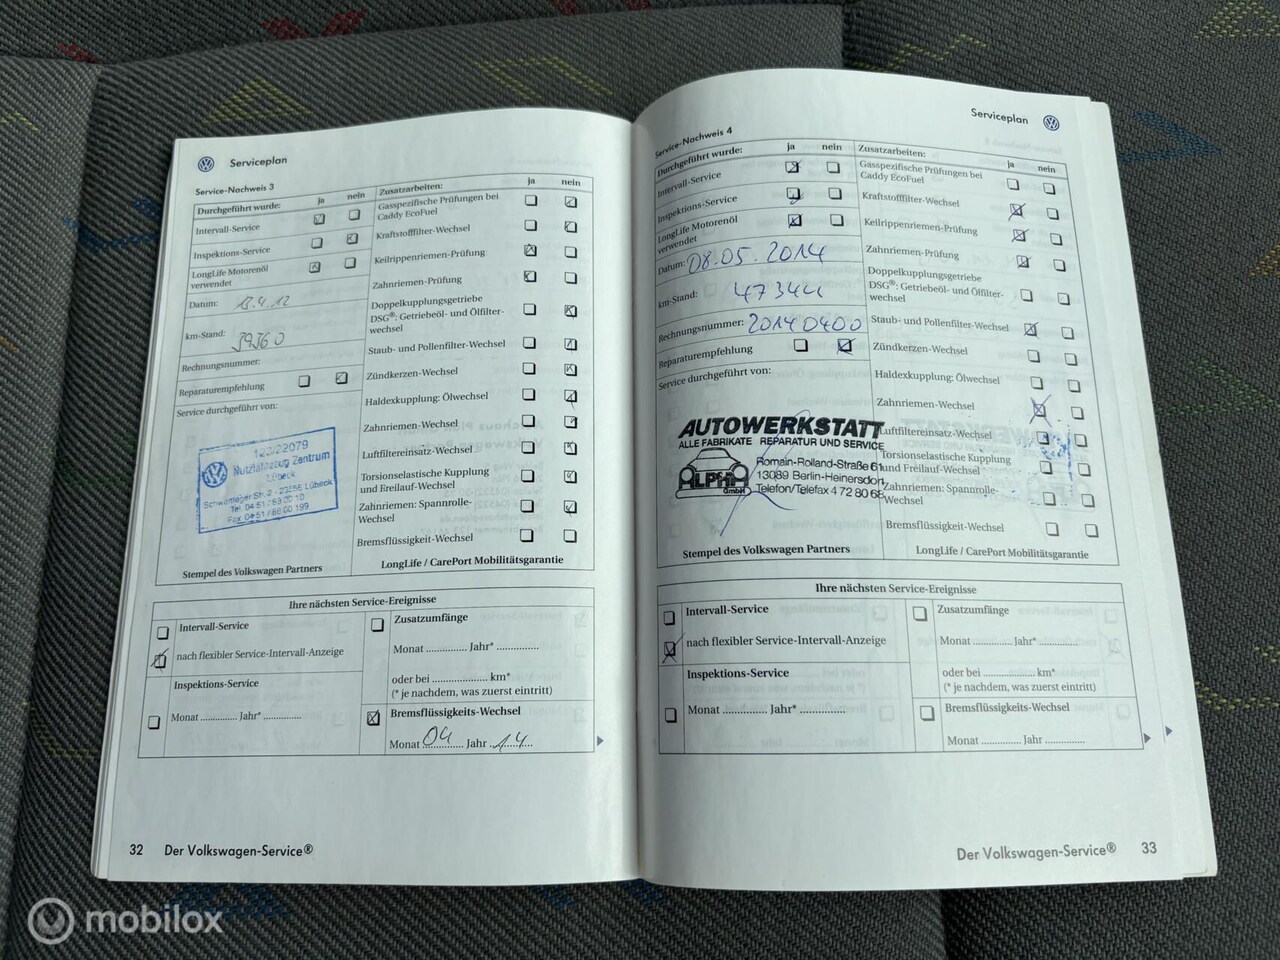 Serviceplan
Service-Nachweis 3
Durchgeführt wurde: ja nein
Intervall-Service
Inspektions-Service
LongLife Motorenöl
verwendet
Datum:
km-Stand: 39360
Rechnungsnummer:
Reparaturempfehlung
Service durchgeführt von:
Nutzfahrzeug Zentrum
Lübeck
Tel. 04 51 / 88 00 10
Fax 04 51 / 88 00 199
Stempel des Volkswagen Partners
Zusatzarbeiten: ja nein
Gasspezifische Prüfungen bei
Caddy EcoFuel
Kraftstofffilter-Wechsel
Keilrippenriemen-Prüfung
Zahnriemen-Prüfung
Doppelkupplungsgetriebe
DSG®: Getriebeöl- und Ölfilter-
wechsel
Staub- und Pollenfilter-Wechsel
Zündkerzen-Wechsel
Haldexkupplung: Ölwechsel
Zahnriemen-Wechsel
Luftfiltereinsatz-Wechsel
Torsionselastische Kupplung
und Freilauf-Wechsel
Zahnriemen: Spannrolle-
Wechsel
Bremsflüssigkeit-Wechsel
LongLife / CarePort Mobilitätsgarantie
Ihre nächsten Service-Ereignisse
Intervall-Service
nach flexibler Service-Intervall-Anzeige
Inspektions-Service
Monat .............. Jahr* ..............
Zusatzumfänge
Monat .............. Jahr* ..............
oder bei .................... km*
(* je nachdem, was zuerst eintritt)
Bremsflüssigkeits-Wechsel
Monat 04 Jahr 14
32 Der Volkswagen-Service®
Serviceplan
Service-Nachweis 4
Durchgeführt wurde: ja nein
Intervall-Service
Inspektions-Service
LongLife Motorenöl
verwendet
Datum: 08.05.2014
km-Stand: 47344
Rechnungsnummer: 20140400
Reparaturempfehlung
Service durchgeführt von:
AUTOWERKSTATT
ALLE FABRIKATE REPARATUR UND SERVICE
ALPHA
GmbH
Romain-Rolland-Straße 61
13089 Berlin-Heinersdorf
Telefon/Telefax 4 72 80 68
Stempel des Volkswagen Partners
Zusatzarbeiten: ja nein
Gasspezifische Prüfungen bei
Caddy EcoFuel
Kraftstofffilter-Wechsel
Keilrippenriemen-Prüfung
Zahnriemen-Prüfung
Doppelkupplungsgetriebe
DSG®: Getriebeöl- und Ölfilter-
wechsel
Staub- und Pollenfilter-Wechsel
Zündkerzen-Wechsel
Haldexkupplung: Ölwechsel
Zahnriemen-Wechsel
Luftfiltereinsatz-Wechsel
Torsionselastische Kupplung
und Freilauf-Wechsel
Zahnriemen: Spannrolle-
Wechsel
Bremsflüssigkeit-Wechsel
LongLife / CarePort Mobilitätsgarantie
Ihre nächsten Service-Ereignisse
Intervall-Service
nach flexibler Service-Intervall-Anzeige
Inspektions-Service
Monat .............. Jahr* ..............
Zusatzumfänge
Monat .............. Jahr* ..............
oder bei .................... km*
(* je nachdem, was zuerst eintritt)
Bremsflüssigkeits-Wechsel
Monat .............. Jahr ..............
Der Volkswagen-Service® 33
mobilox